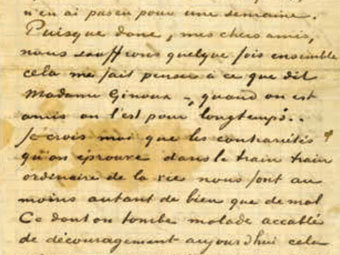 n'en ai passé pour une semaine.
Puisque donc, mes chers amis,
nous souffrons quelque fois ensemble
cela me fait penser à ce que dit
Madame Ginoux –, quand on est
amis on l'est pour longtemps..
Je crois moi que les contrariétés
qu'on éprouve dans le train train
ordinaire de la vie nous font au
moins autant de bien que de mal
Ce dont on tombe malade accablé
de découragement aujourd'hui cela